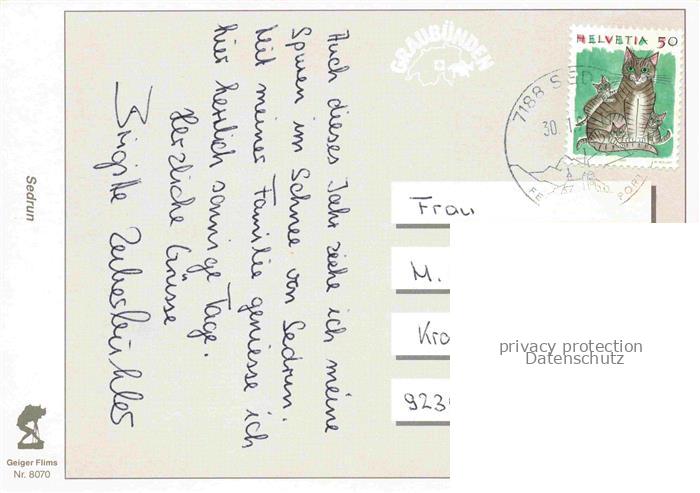 Auch dieses Jahr ziehe ich meine
Spuren im Schnee von Sedrun.
Mit meiner Familie geniesse ich
hier herrlich sonnige Tage.
Herzliche Grüsse
Brigitte
GRAUBÜNDEN
HELVETIA 50
7188 SED
30.1.
FE
PORT
Frau
M.
Kro
923
privacy protection
Datenschutz
Sedrun
Geiger Flims
Nr. 8070